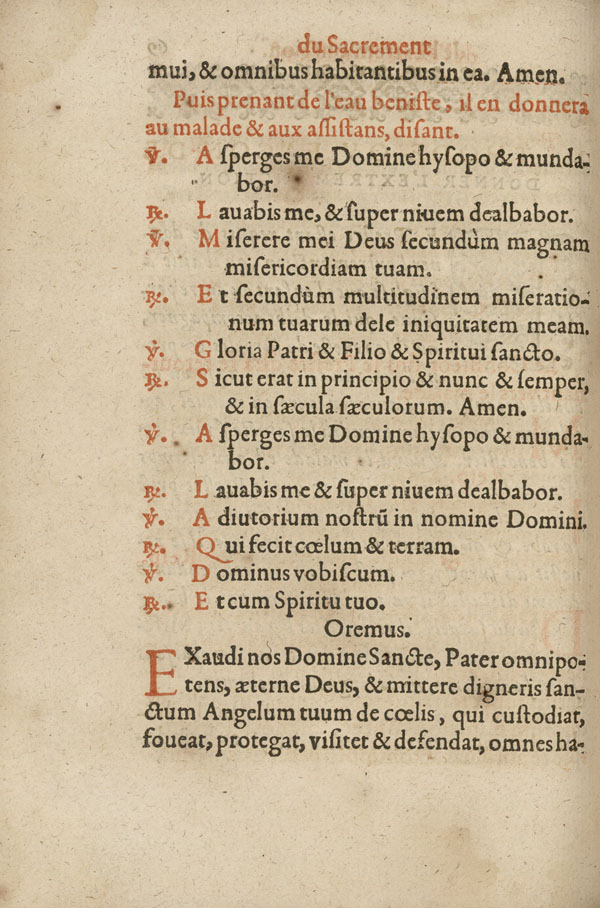 du Sacrement
mui, & omnibus habitantibus in ea. Amen.
Puis prenant de l'eau beniste, il en donnera
au malade & aux aſſiſtans, diſant.
℣. A ſperges me Domine hyſopo & munda-
bor.
℟. L auabis me, & ſuper niuem dealbabor.
℣. M iſerere mei Deus ſecundùm magnam
miſericordiam tuam.
℟. E t ſecundùm multitudinem miſeratio-
num tuarum dele iniquitatem meam.
℣. G loria Patri & Filio & Spiritui ſancto.
℟. S icut erat in principio & nunc & ſemper,
& in ſæcula ſæculorum. Amen.
℣. A ſperges me Domine hyſopo & munda-
bor.
℟. L auabis me & ſuper niuem dealbabor.
℣. A diutorium noſtrũ in nomine Domini.
℟. Q ui fecit cœlum & terram.
℣. D ominus vobiſcum.
℟. E t cum Spiritu tuo.
Oremus.
EXaudi nos Domine Sancte, Pater omnipo-
tens, æterne Deus, & mittere digneris ſan-
ctum Angelum tuum de cœlis, qui cuſtodiat,
foueat, protegat, viſitet & defendat, omnes ha-